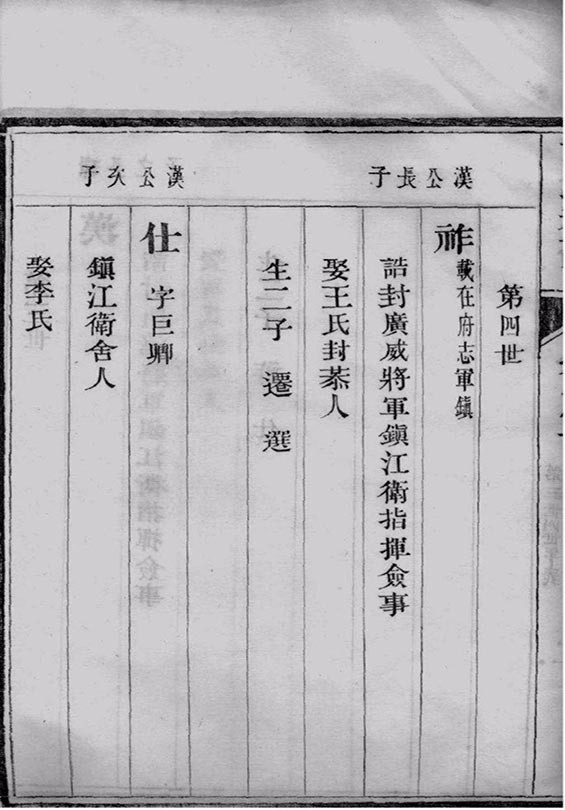 第四世
漢公長子
祚 載在府志軍鎮
誥封廣威將軍鎮江衛指揮僉事
娶王氏封恭人
生二子 遷 選
漢公次子
仕 字巨卿
鎮江衛舍人
娶李氏